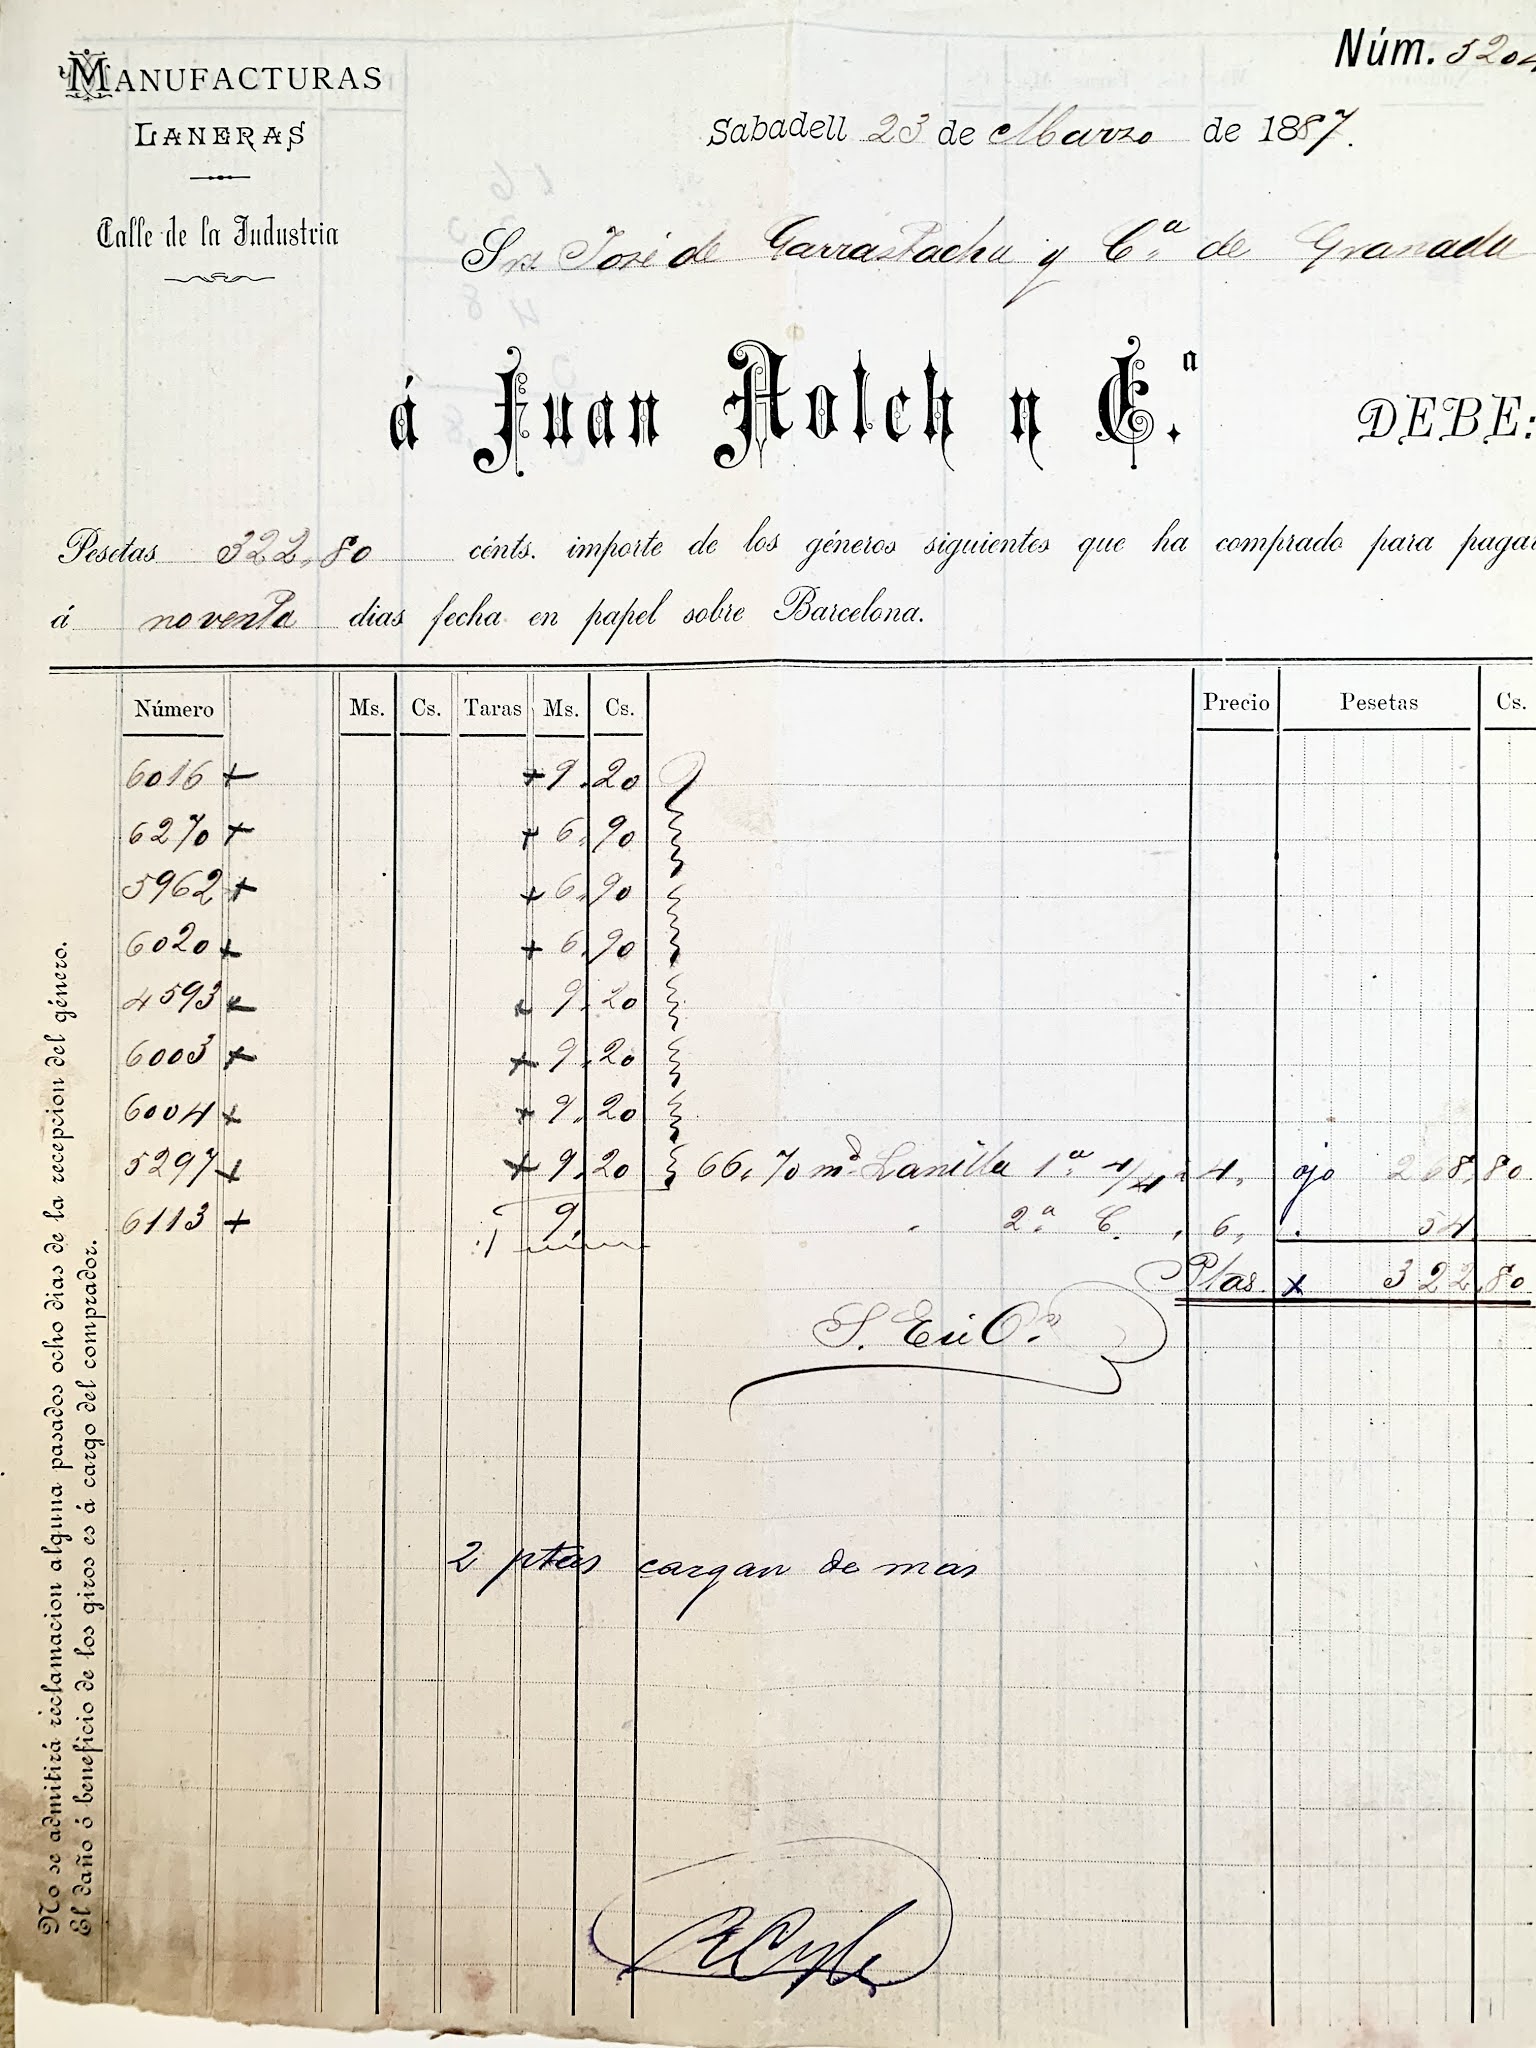 MANUFACTURAS
LANERAS
Calle de la Industria
Núm. 5204
Sabadell 23 de Marzo de 1887.
Srs José de Garrastachu y Cª de Granada
á Juan Folch y Cª.
DEBE:
Pesetas 322,80 cénts. importe de los géneros siguientes que ha comprado para pagar
á noventa dias fecha en papel sobre Barcelona.
Número Ms. Cs. Taras Ms. Cs. Precio Pesetas Cs.
6016 + + 9.20
6270 + + 6.90
5962 + + 6.90
6020 + + 6.90
4593 + + 9.20
6003 + + 9.20
6004 + + 9.20
5297 + + 9.20 66,70 ms Lanilla 1ª 4/4 4, ojo 268,80
6113 + 9, 2ª C. 6, 54
Ptas. x 322,80
S. E. ú O.
2 ptas cargan de mas
No se admitirá reclamacion alguna pasados ocho dias de la recepcion del género.
El daño ó beneficio de los giros es á cargo del comprador.